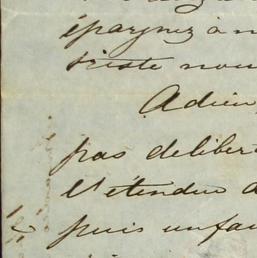 épargnez à n
triste nou
Adieu,
pas deliber
et l'étendue d
puis un fau